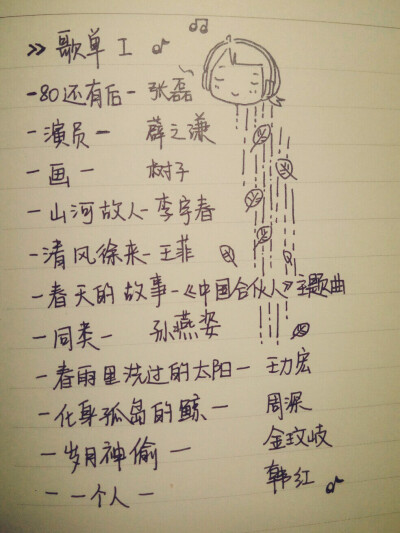 》歌单 I
-80还有后- 张磊
-演员- 薛之谦
-画- 树子
-山河故人-李宇春
-清风徐来-王菲
-春天的故事-《中国合伙人》主题曲
-同类- 孙燕姿
-春雨里洗过的太阳- 王力宏
-化身孤岛的鲸- 周深
-岁月神偷- 金玟岐
-一个人- 韩红